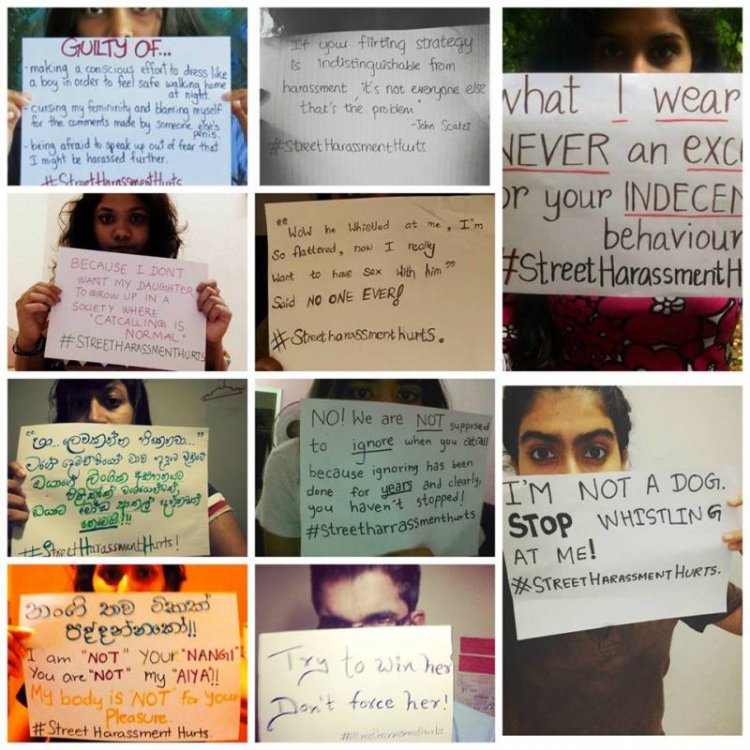 GUILTY OF...
- making a conscious effort to dress like
a boy in order to feel safe walking home
at night.
- cursing my femininity and blaming myself
for the comments made by someone else's
penis.
- being afraid to speak up out of fear that
I might be harassed further.
#StreetHarassmentHurts
"If your flirting strategy
is indistinguishable from
harassment, it's not everyone else
that's the problem."
-John Scalzi
#StreetHarassmentHurts
what I wear
NEVER an EXC
or your INDECEN
behaviour
#StreetHarassmentH
BECAUSE I DON'T
WANT MY DAUGHTER
TO GROW UP IN A
SOCIETY WHERE
"CATCALLING IS
NORMAL"
#STREETHARASSMENTHURTS
"Wow he whistled at me, I'm
so flattered, now I really
want to have sex with him"
Said NO ONE EVER!
#StreetharassmenthurtS.
"හා.. ලෙවකන්න හිතෙනවා..."
මගේ මාව
ඔයාගේ ලිංගික
#StreetHarassmentHurts!
NO! We are NOT supposed
to ignore when you catcall
because ignoring has been
done for years and clearly,
you haven't stopped!
#Streetharrassmenthurts
I'M NOT A DOG.
STOP WHISTLING
AT ME!
#STREETHARASSMENTHURTS.
නංගි තව ටිකක්
පද්දන්නකෝ!!
I am "NOT" YOUR "NANGI"!
You are "NOT" my "AIYA"!!
My body is "NOT" for your
Pleasure.
#Street Harassment Hurts.
Try to win her
Don't force her!
#Streetharrasmenthurts